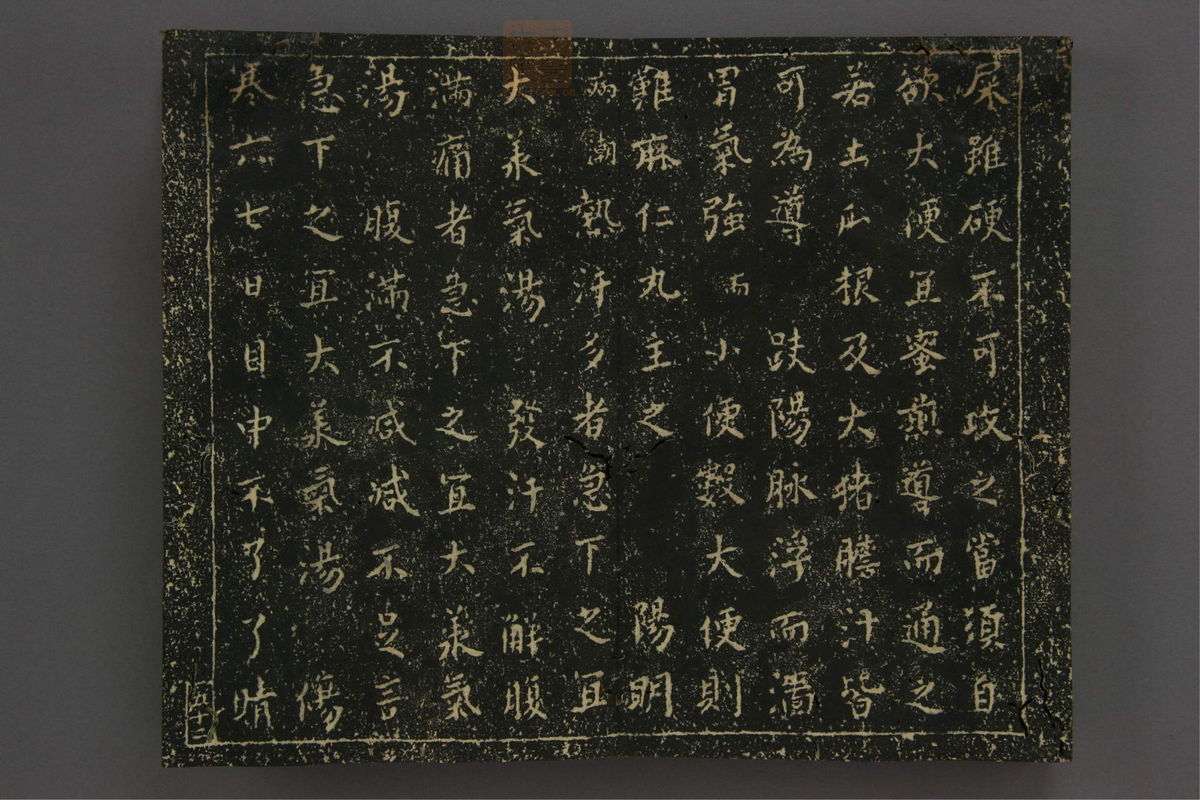 屎雖硬不可攻之當須自
欲大便宜蜜煎導而通之
若土瓜根及大猪膽汁皆
可為導 趺陽脉浮而濇
胃氣強而小便數大便則
難麻仁丸主之 陽明
病潮熱汗多者急下之宜
大承氣湯 發汗不解腹
滿痛者急下之宜大承氣
湯 腹滿不減減不足言
急下之宜大承氣湯 傷
寒六七日目中不了了睛
五十二